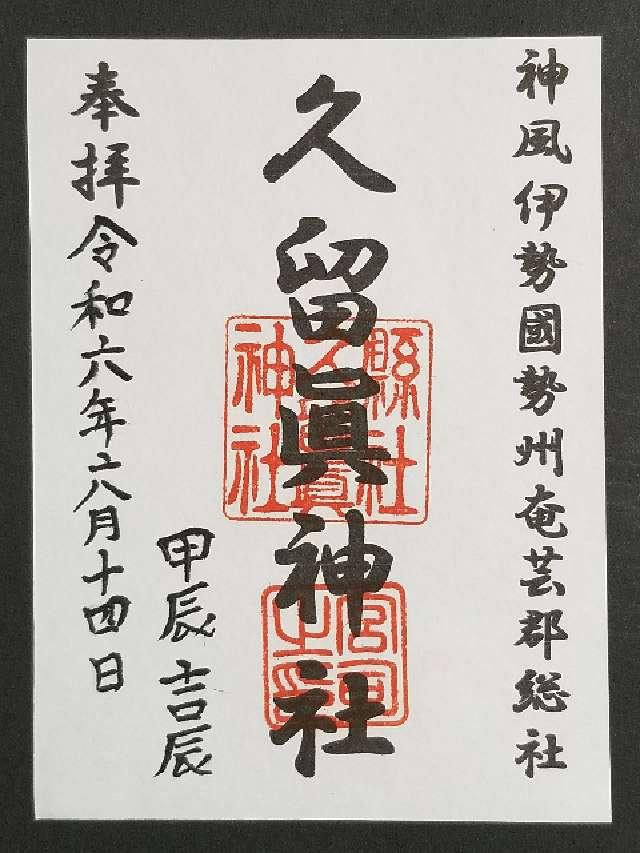 神風伊勢國勢州奄芸郡総社
久留眞神社
縣社
久留眞
神社
宮司
之印
甲辰吉辰
奉拝令和六年六月十四日